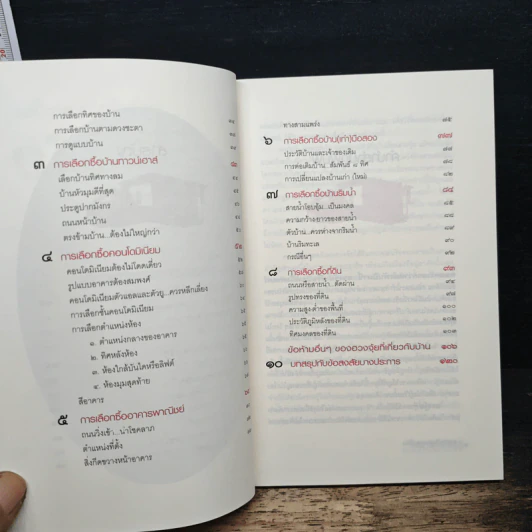 การเลือกทิศของบ้าน
การเลือกบ้านตามดวงชะตา
การดูแบบบ้าน
๓ การเลือกซื้อบ้านทาวน์เฮาส์
เลือกบ้านทิศทางลม
บ้านหัวมุมดีที่สุด
ประตูปากมังกร
ถนนหน้าบ้าน
ตรงข้ามบ้าน...ต้องไม่ใหญ่กว่า
๔ การเลือกซื้อคอนโดมิเนียม
คอนโดมิเนียมต้องไม่โดดเดี่ยว
รูปแบบอาคารต้องสมพงศ์
คอนโดมิเนียมตัวแอลและตัวยู...ควรหลีกเลี่ยง
การเลือกชั้นคอนโดมิเนียม
การเลือกตำแหน่งห้อง
๑. ตำแหน่งกลางของอาคาร
๒. ทิศหลังห้อง
๓. ห้องใกล้บันไดหรือลิฟต์
๔. ห้องมุมสุดท้าย
สีอาคาร
๕ การเลือกซื้ออาคารพาณิชย์
ถนนวิ่งเข้า...นำโชคลาภ
ตำแหน่งที่ตั้ง
สิ่งกีดขวางหน้าอาคาร
ทางสามแพร่ง ๗๕
๖ การเลือกซื้อบ้าน(เก่า)มือสอง ๗๗
ประวัติบ้านและเจ้าของเดิม
การต่อเติมบ้าน..สัมพันธ์ ๘ ทิศ
การเปลี่ยนแปลงบ้านเก่า (ใหม่)
๗ การเลือกซื้อบ้านริมน้ำ ๘๔
สายน้ำโอบอุ้ม...เป็นมงคล
ความกว้าง-ยาวของสายน้ำ
ตัวบ้าน...ควรห่างจากริมน้ำ
บ้านริมทะเล ๙๐
กรณีอื่นๆ
๘ การเลือกซื้อที่ดิน ๙๓
ถนนหรือสายน้ำ..ตัดผ่าน
รูปทรงของที่ดิน
ความสูง-ต่ำของพื้นที่ ๑๐๐
ประวัติภูมิหลังของที่ดิน ๑๐๒
ทิศมงคลของที่ดิน ๑๐๓
ข้อห้ามอื่นๆ ของฮวงจุ้ยที่เกี่ยวกับบ้าน ๑๐๖
๑๐ บทสรุปกับข้อสงสัยบางประการ ๑๒๐